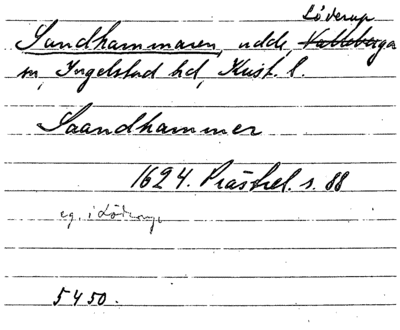 Löderup
Sandhammaren, udde, Valleberga
sn, Ingelstad hd, Krist. l.
Saandhammer
1624. Prästrel. s. 88
eg. i Löderup
5450.